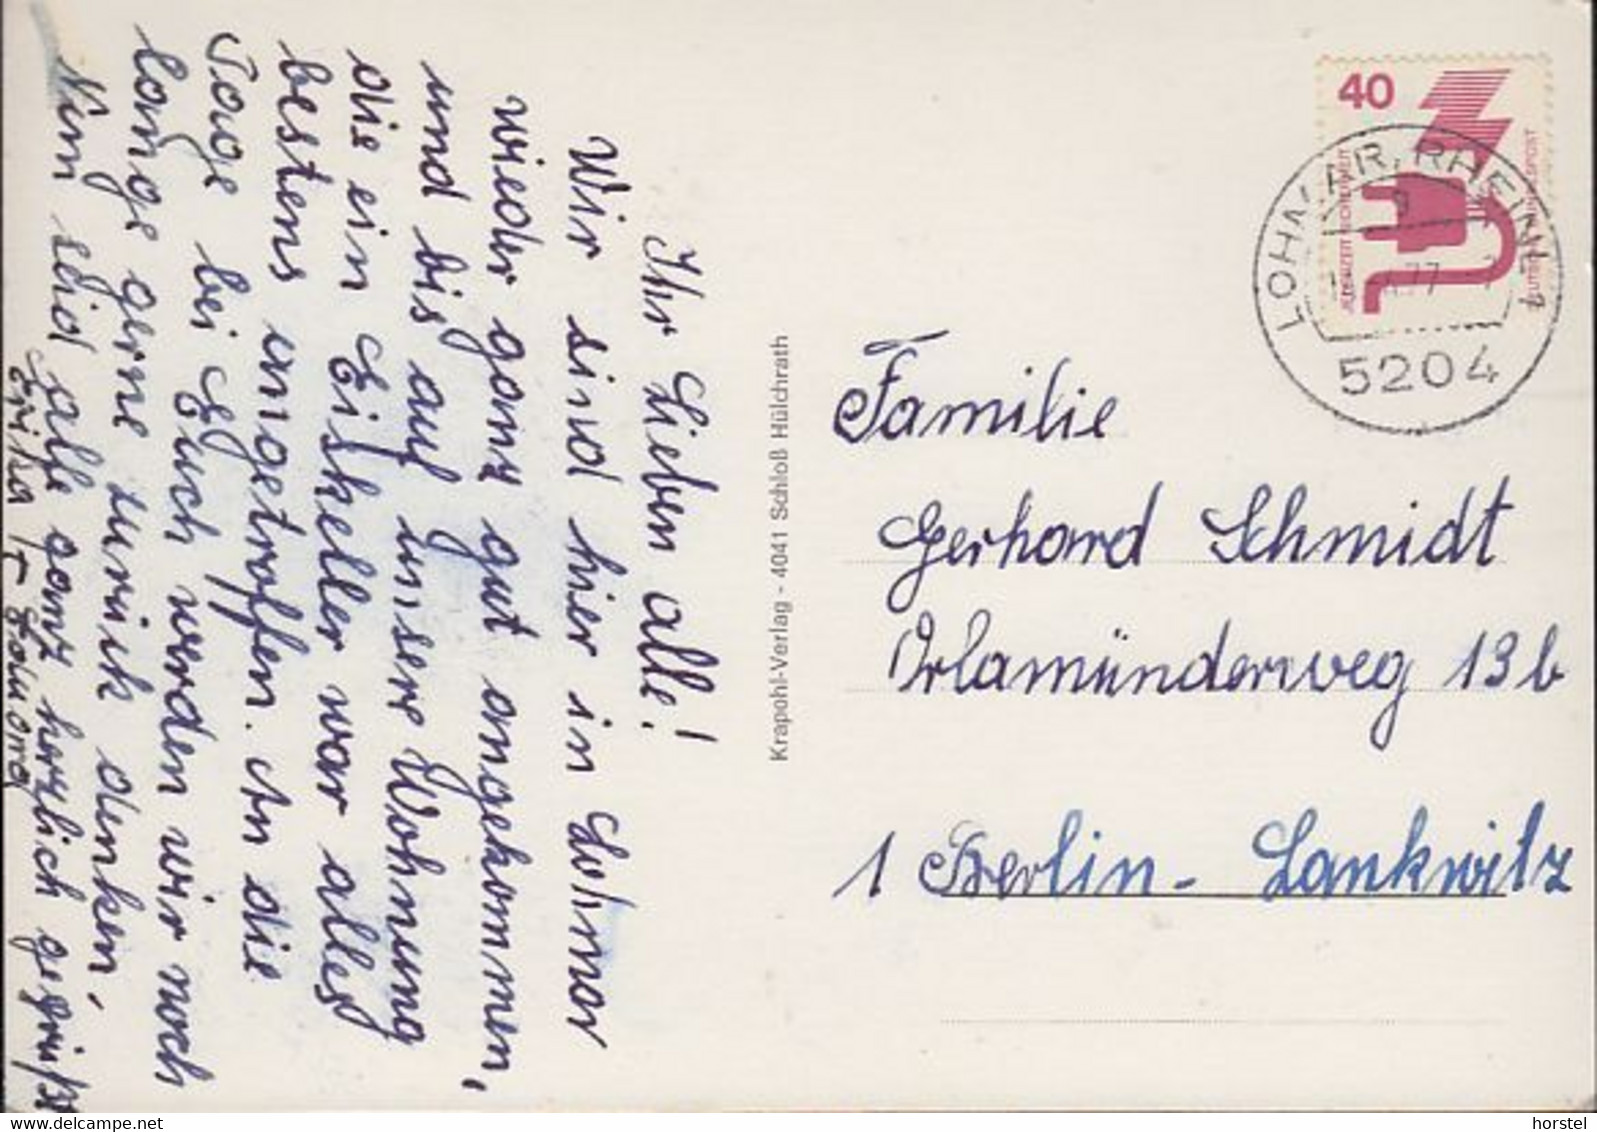 Ihr Lieben alle!
Wir sind hier in Lohmar
wieder ganz gut angekommen,
und bis auf unsere Wohnung
die ein Eiskeller war alles
bestens angetroffen. An die
Tage bei Euch werden wir noch
lange gerne zurück denken,
Nun seid alle ganz herzlich gegrüßt
Erika
Krapohl-Verlag - 4041 Schloß Hülchrath
40
JEDERZEIT SICHERHEIT
LOHMAR, RHEINL 1
77
5204
Familie
Gerhard Schmidt
Orlamünderweg 13b
1 Berlin - Lankwitz
www.delcampe.net
horstel